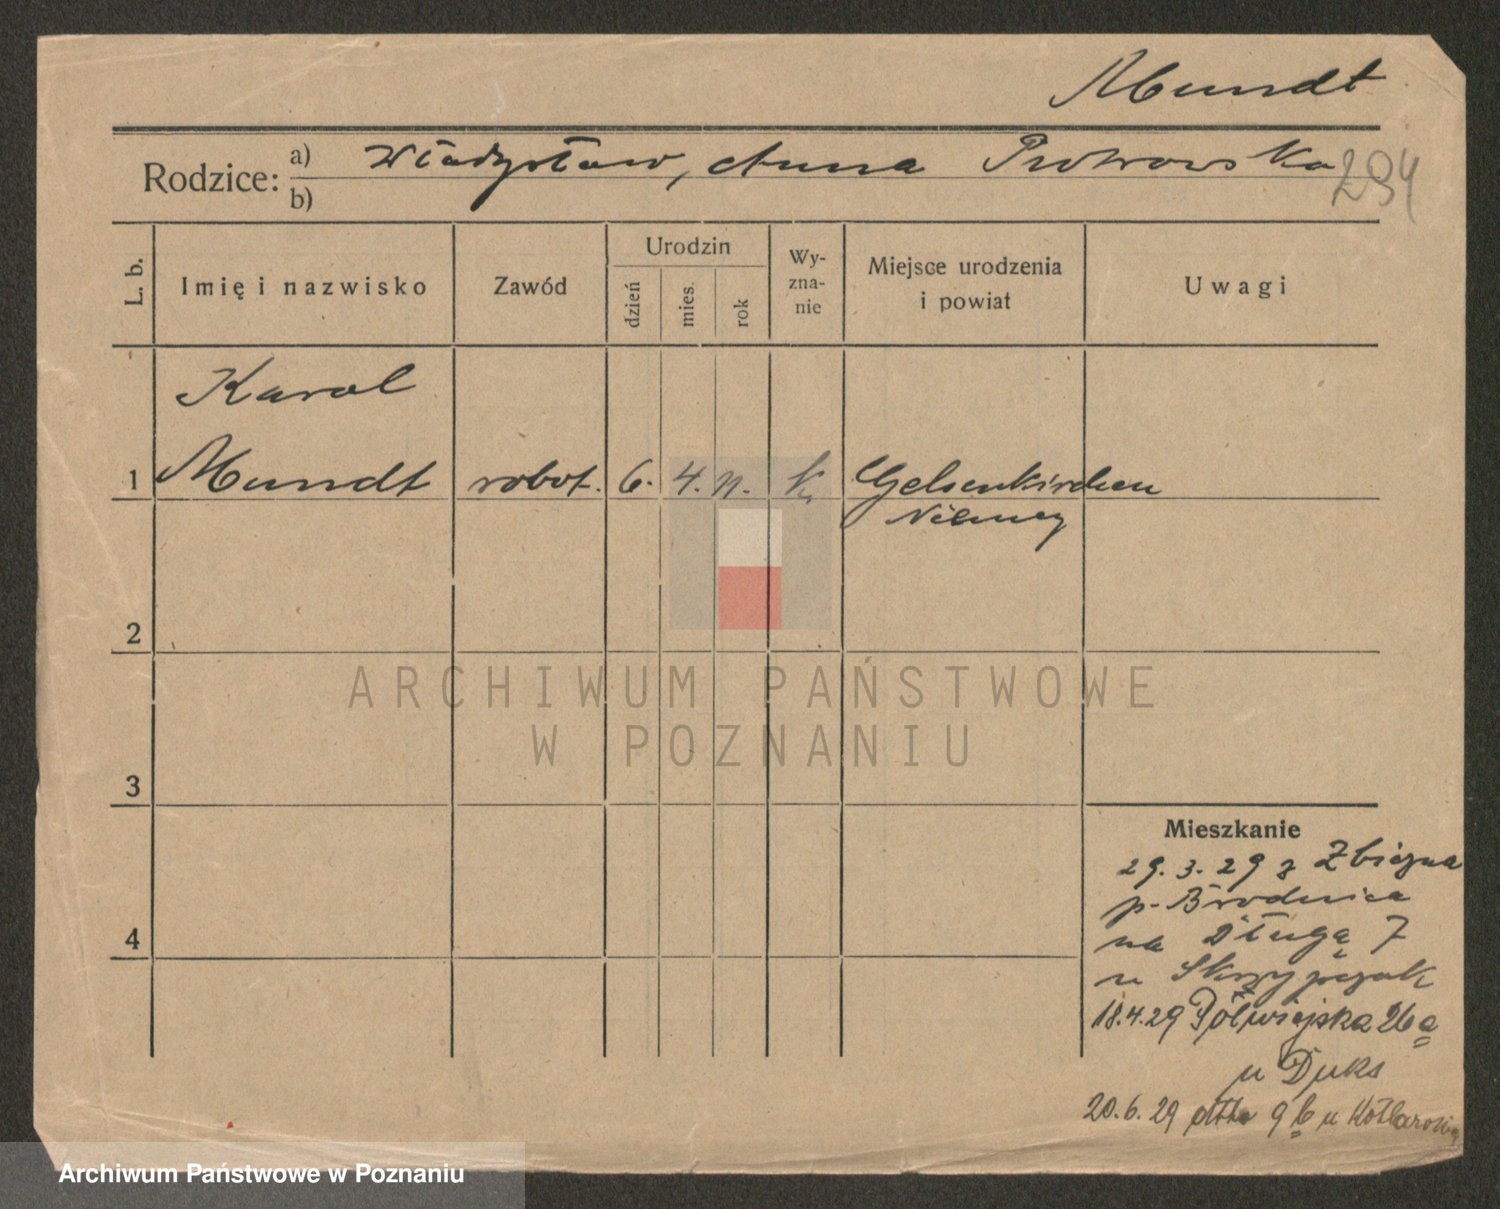 Mundt
Rodzice: a) Władysław, Anna Piotrowska
b)
294
L. b. Imię i nazwisko Zawód Urodzin dzień mies. rok Wy-zna-nie Miejsce urodzenia i powiat Uwagi
Karol
1 Mundt robot. 6. 4. 11. k. Gelsenkirchen
Niemcy
2
3
4
ARCHIWUM PAŃSTWOWE
W POZNANIU
Mieszkanie
29.3.29 z Zbiczna
p. Brodnica
na Długą 7
u Skrzypczak
18.4.29 Półwiejska 26a
u Duks
20.6.29 9b u
Archiwum Państwowe w Poznaniu